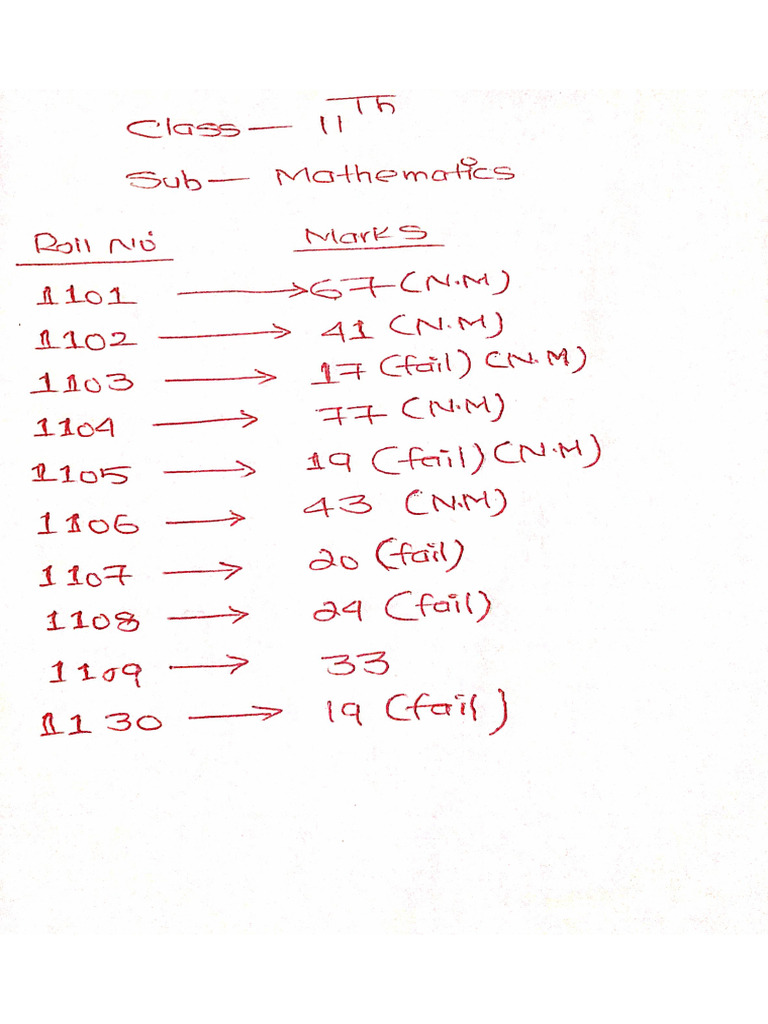 Class — 11Th
Sub — Mathematics
Roll No Marks
1101 → 67 (N.M)
1102 → 41 (N.M)
1103 → 17 (fail) (N.M)
1104 → 77 (N.M)
1105 → 19 (fail) (N.M)
1106 → 43 (N.M)
1107 → 20 (fail)
1108 → 24 (fail)
1109 → 33
1130 → 19 (fail)